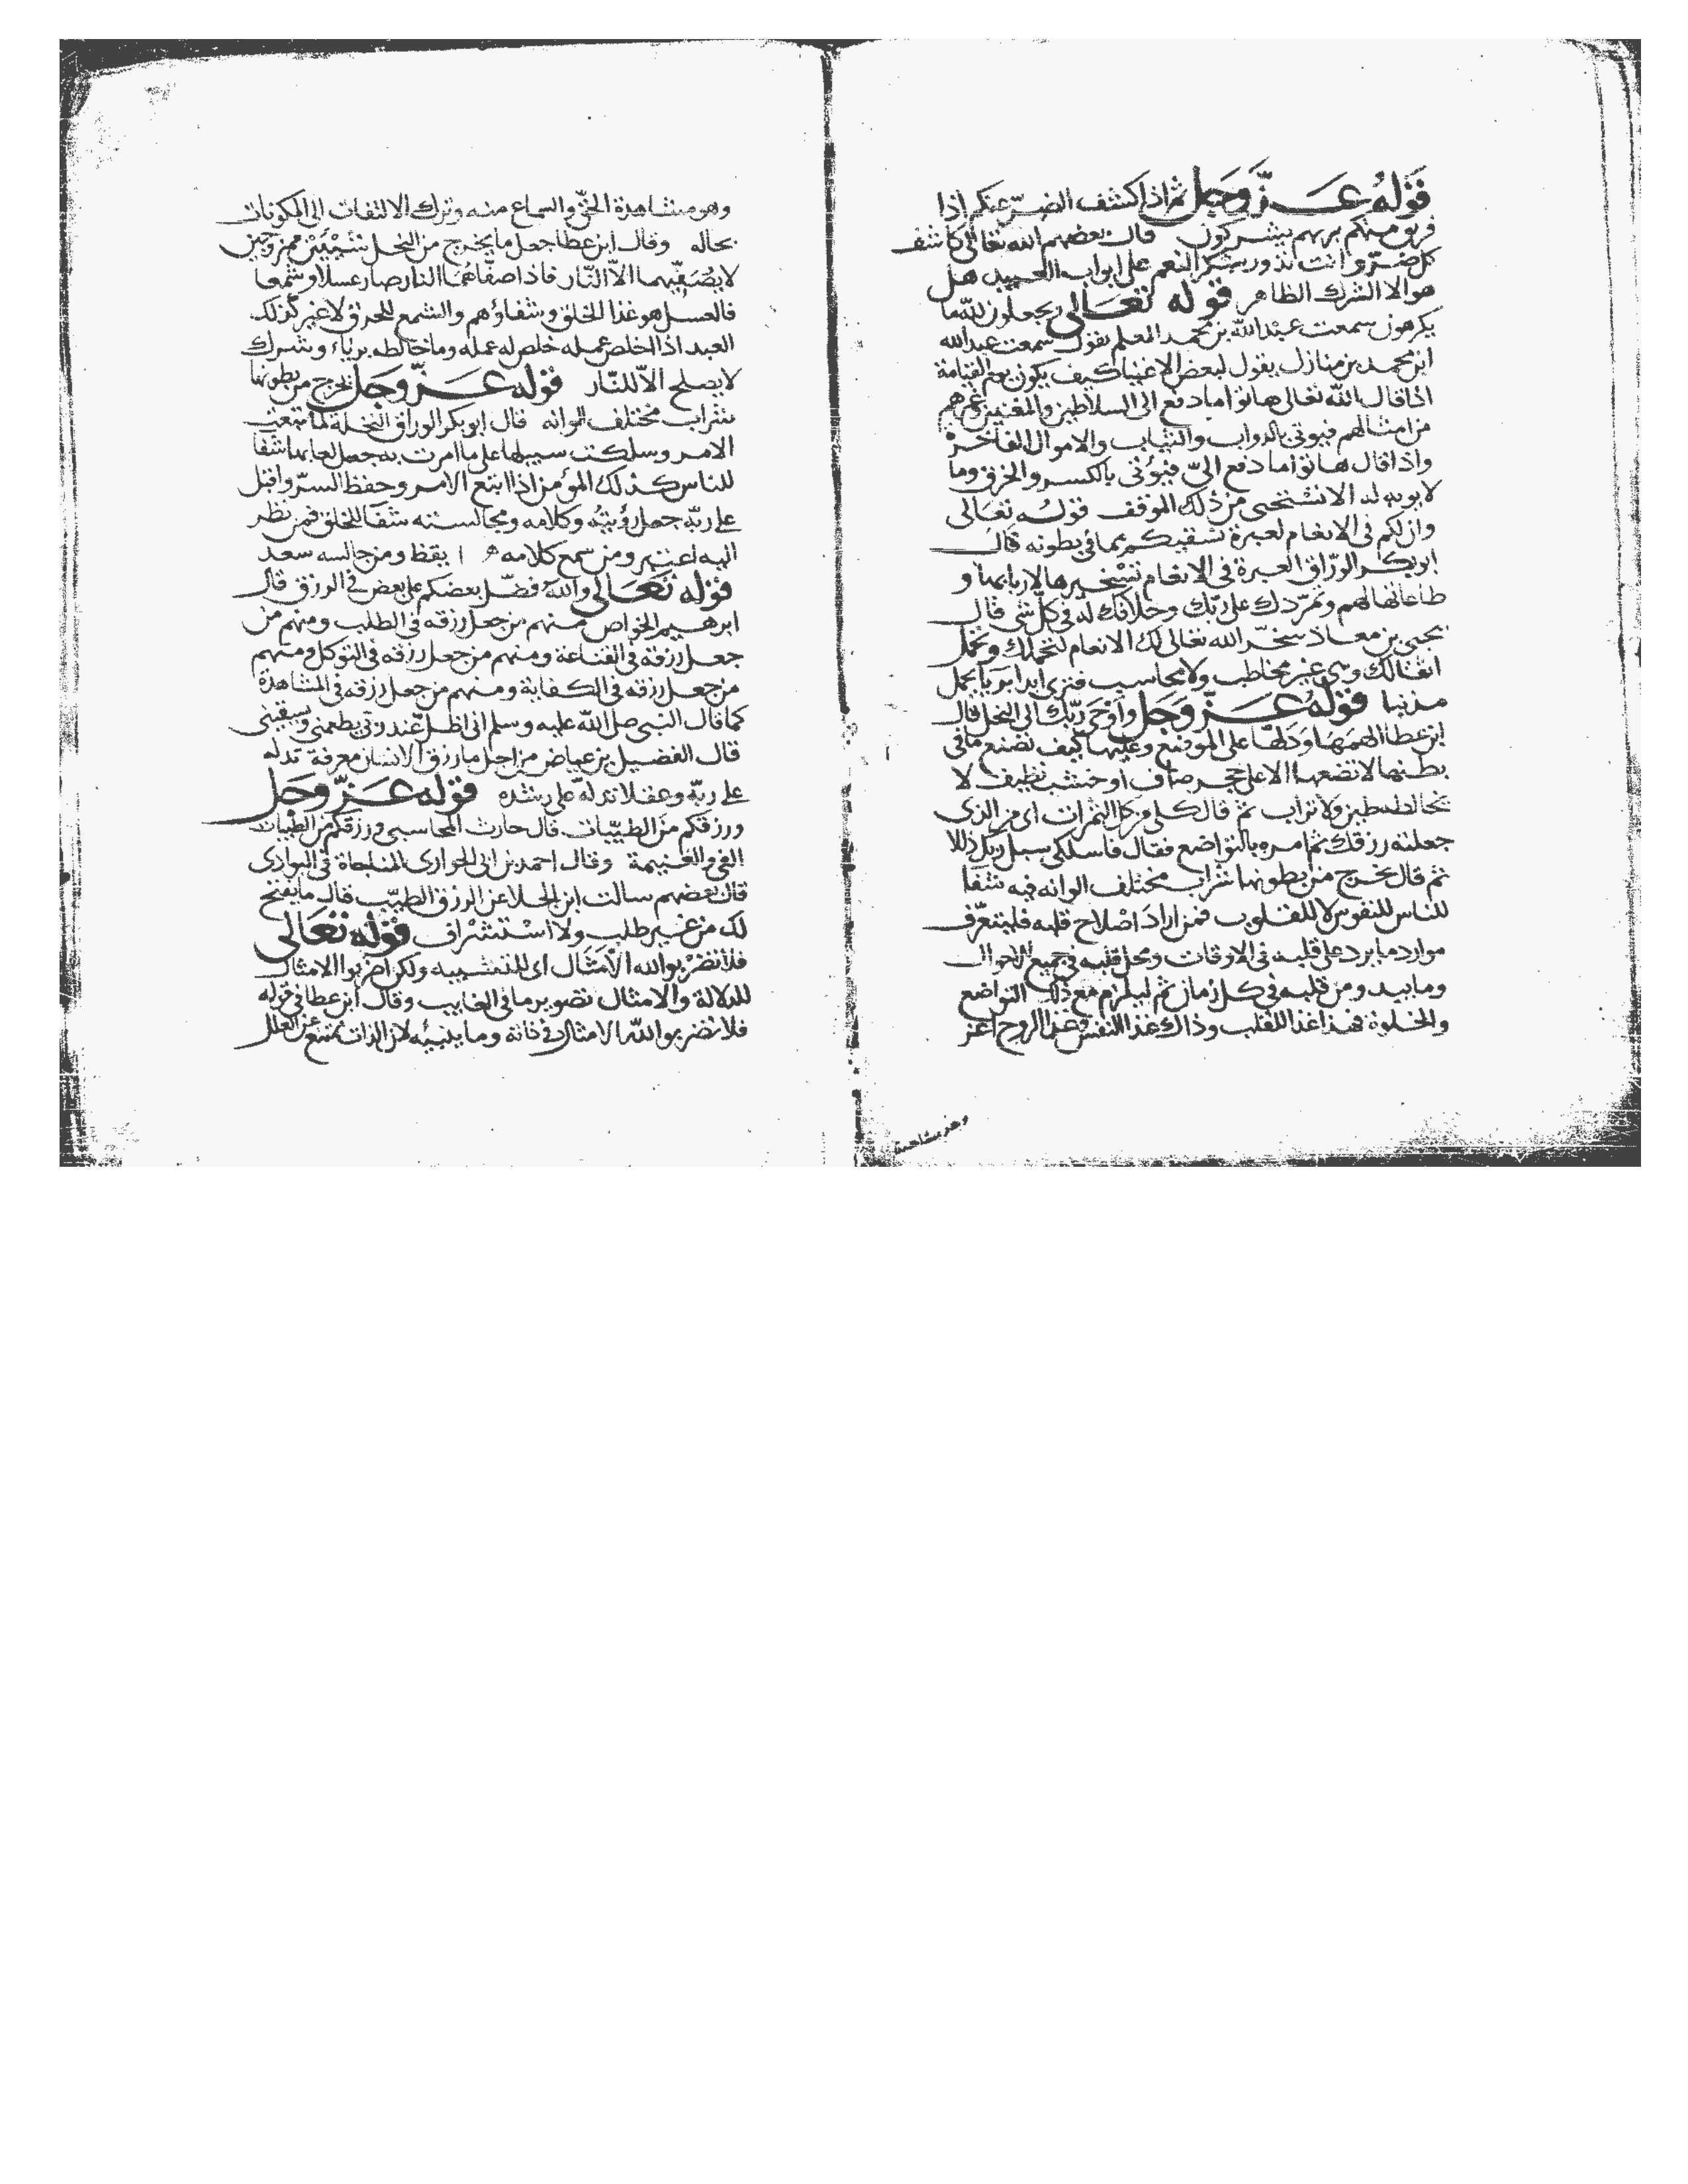 قوله عز وجل ثم اذا كشف الضر عنكم اذا
فريق منكم بربهم يشركون قال بعضهم الله تعالى كاشف
كل ضر وانت تدور بشكر النعم على ابواب العبيد هل
هو الا الشرك الظاهر قوله تعالى ويجعلون لله ما
يكرهون سمعت عبد الله بن محمد المعلم يقول سمعت عبد الله
ابن محمد بن منازل يقول لبعض الاغنيا كيف يكون يوم القيامة
اذا قال الله تعالى هاتوا ما دفع الى السلاطين والمغنيين وغيرهم
من امثالهم فيوتى بالدواب والثياب والاموال الفاخرة
واذا قال هاتوا ما دفع الىّ فيؤتى بالكسر والخرق وما
لا يوبه له الا تستحيى من ذلك الموقف قوله تعالى
وان لكم فى الانعام لعبرة نسقيكم مما فى بطونه قال
ابو بكر الورّاق العبرة فى الانعام تسخيرها لاربابها و
طاعاتها لهم وتمرّدك على ربّك وخلافك له فى كلّ شى قال
يحيى بن معاذ سخّر الله تعالى لك الانعام لتحملك وتحمل
اثقالك وهى غير مخاطب ولا محاسب فترى ابدا بريا يحمل
مذنبا قوله عزّ وجل واوحى ربّك الى النحل قال
ابن عطا الهمها ودلّها على الموضع وعليها كيف تضع ما فى
بطنها لا تضعها الا على حجر صاف او خشب نظيف لا
تخالطه طين ولا تراب ثمّ قال كلى من كل الثمرات اى من الذى
جعلته رزقك ثم امره بالتواضع فقال فاسلكى سبل ربّك ذللا
ثم قال يخرج من بطونها شراب مختلف الوانه فيه شفا
للناس للنفوس لا للقلوب فمن اراد اصلاح قلبه فليتعرّف
موارد ما يرد على قلبه فى الاوقات ومحل قلبه فى جميع الاحوال
وما يبد ومن قلبه فى كل زمان ثم ليلزم مع ذلك التواضع
والخلوة فهذا غذا للقلب وذاك غذا للنفس وغذا الروح اعز
وهو مشاهدة
وهو مشاهدة الحق والسماع منه وترك الالتفات الى المكونات
بحاله وقال ابن عطا جعل ما يخرج من النحل شيئين ممزوجين
لا يصفيهما الاّ النّار فاذا صفّاهما النار صار عسلا وشمعا
فالعسل هو غذا الخلق وشفاؤهم والشمع للحرق لا غير كذلك
العبد اذا اخلص عمله خلص له عمله وما خالطه برياء وشرك
لا يصلح الاّ للنّار قوله عزّ وجل يخرج من بطونها
شراب مختلف الوانه قال ابو بكر الوراق النحلة لما تبعت
الامر وسلكت سبيلها على ما امرت به جعل لعابها شفا
للناس كذلك المؤمن اذا اتبع الامر وحفظ السرّ واقبل
على ربّه جعل رؤيته وكلامه ومجالسته شفا للخلق فمن نظر
اليه اعتبر ومن سمع كلامه اتّعظ ومن جالسه سعد
قوله تعالى والله فضّل بعضكم على بعض فى الرزق قال
ابرهيم الخواص منهم من جعل رزقه فى الطلب ومنهم من
جعل رزقه فى القناعة ومنهم من جعل رزقه فى التوكل ومنهم
من جعل رزقه فى الكفاية ومنهم من جعل رزقه فى المشاهدة
كما قال النبى صلى الله عليه وسلم انى اظلّ عند ربّى يطعمنى ويسقينى
قال الفضيل بن عياض من اجل ما رزق الانسان معرفة تدله
على ربّه وعقلا تدلّه على رشده قوله عزّ وجل
ورزقكم من الطيّبات قال حارث المحاسبى ورزقكم من الطيبات
الفى والغنيمة وقال احمد بن ابى الحوارى المناجاة فى البوادى
قال بعضهم سالت ابن الجلا عن الرزق الطيّب قال ما يفتح
لك من غير طلب ولا استشراف قوله تعالى
فلا تضربو الله الامثال اى للتشبيه ولكن اضربوا الامثال
للدلالة والامثال تصوير ما فى الغايب وقال ابن عطا فى قوله
فلا تضربو الله الامثال فى ذاته وما يليه لان الذات تمتنع عن العلل